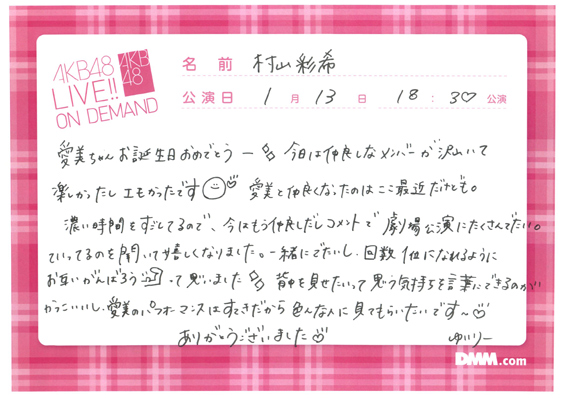 AKB48
LIVE!!
ON DEMAND
AKB
48
名前 村山彩希
公演日 1月13日 18:30公演
愛美ちゃんお誕生日おめでとう 今日は仲良しなメンバーが沢山いて
楽しかったしエモかったです 愛美と仲良くなったのはここ最近だけども。
濃い時間をすごしてるので、今はもう仲良しだしコメントで劇場公演にたくさんでたい。
っていってるのを聞いて嬉しくなりました。一緒にでたいし、回数1位になれるように
お互いがんばろう って思いました 背中を見せたいって思う気持ちを言葉にできるのが
かっこいいし、愛美のパフォーマンスはすてきだから色んな人に見てもらいたいです〜♡
ありがとうございました
ゆいりー
DMM.com